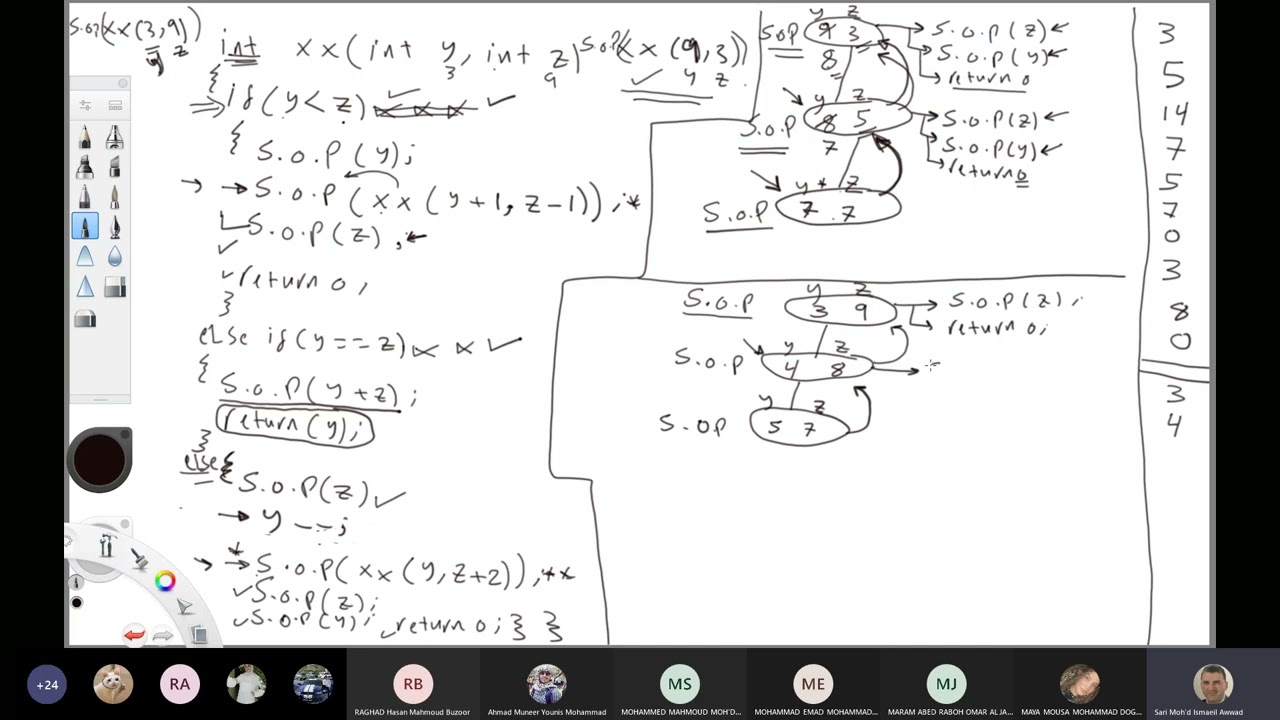 S.O.P(xx(3,9))
y z
int xx(int y, int z) S.O.P(xx(9,3))
3 9 y z
{
if(y<z)
{ S.O.P(y);
S.O.P(xx(y+1, z-1)); *
S.O.P(z);
return 0;
}
else if(y==z)
{
S.O.P(y+z);
return(y);
}
else{
S.O.P(z)
y--;
*
S.O.P(xx(y,z+2)); **
S.O.P(z);
S.O.P(y); return 0; } }
y z
S.O.P 9 3 S.O.P(z)
8 S.O.P(y)
return 0
y z
S.O.P 8 5 S.O.P(z)
7 S.O.P(y)
return 0
y * z
S.O.P 7 7
y z
S.O.P 3 9 S.O.P(z);
return 0;
y z
S.O.P 4 8
y z
S.OP 5 7
3
5
14
7
5
7
0
3
8
0
3
4
+24
RA
RB
RAGHAD Hasan Mahmoud Buzoor
Ahmad Muneer Younis Mohammad
MS
MOHAMMED MAHMOUD MOH'D...
ME
MOHAMMAD EMAD MOHAMMAD...
MJ
MARAM ABED RABOH OMAR AL JA...
MAYA MOUSA MOHAMMAD DOG...
Sari Moh'd Ismaeil Awwad